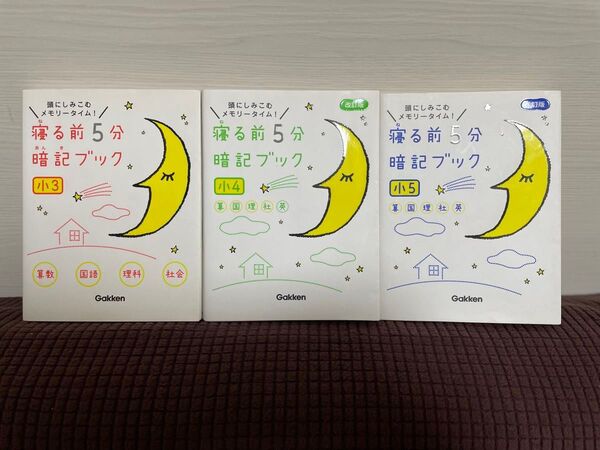 頭にしみこむ
メモリータイム!
寝る前5分
ね まえ ふん
暗記ブック
あん き
小3
算数 国語 理科 社会
Gakken
改訂版
頭にしみこむ
メモリータイム!
寝る前5分
暗記ブック
小4
算 国 理 社 英
Gakken
訂版
頭にしみこむ
メモリータイム!
寝る前5分
暗記ブック
小5
算 国 理 社 英
Gakken